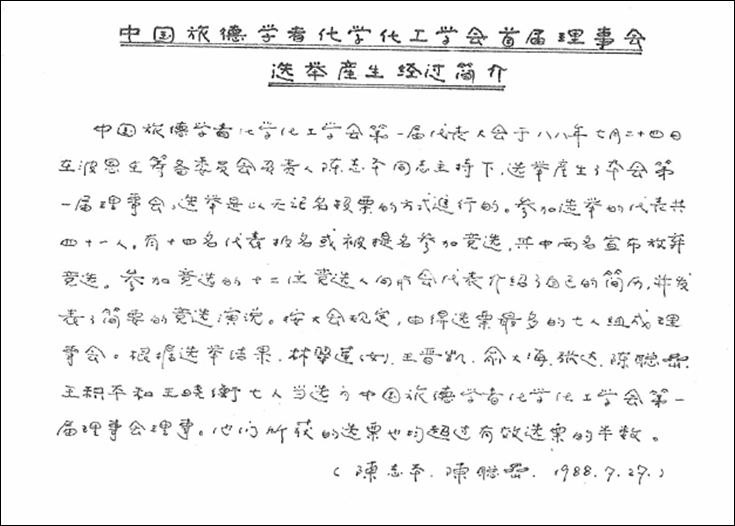 中国旅德学者化学化工学会首届理事会
选举産生经过简介
中国旅德学者化学化工学会第一届代表大会于八八年七月二十四日
在波恩由筹备委员会负责人陈志平同志主持下,选举産生了本会第
一届理事会,选举是以无记名投票的方式進行的。参加选举的代表共
四十一人。有十四名代表报名或被提名参加竞选,其中两名宣布放弃
竞选。参加竞选的十二位竞选人向所会代表介绍了自己的简历,并发
表了简要的竞选演说。按大会规定,由得选票最多的七人组成理
事会。根据选举结果,林翠莲(女),王晋凯,俞大海,张达,陈聪
王积平和王晓衡七人当选为中国旅德学者化学化工学会第一
届理事会理事。他们所获的选票也均超过有效选票的半数。
(陈志平.陈聪 1988.7.27.)